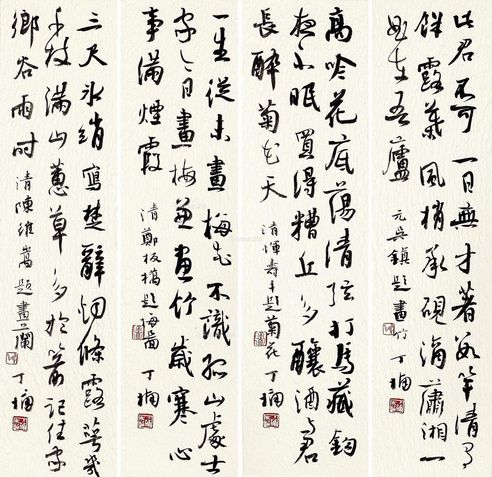 此君不可一日無才著數竿清有
餘露葉風梢承硯滴瀟湘一
在吾廬 元吳鎮題畫竹 丁楠
高吟花底蕩清弦打馬藏鉤
夜不眠買得糟丘多釀酒與君
長醉菊花天 清惲壽平題菊花 丁楠
一生從未畫梅花不識孤山處士
家今日畫梅兼畫竹歲寒心
事滿煙霞 清鄭板橋題梅圖 丁楠
三尺冰綃寫楚辭條露萼幾
多枝滿山蕙草多於箭記住家
鄉谷雨時 清陳維嵩題畫蘭 丁楠